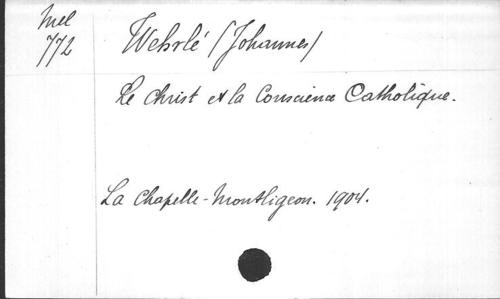 Mel
772
Wehrlé (Johannes)
Le Christ et la Conscience Catholique.
La Chapelle-Montligeon. 1904.